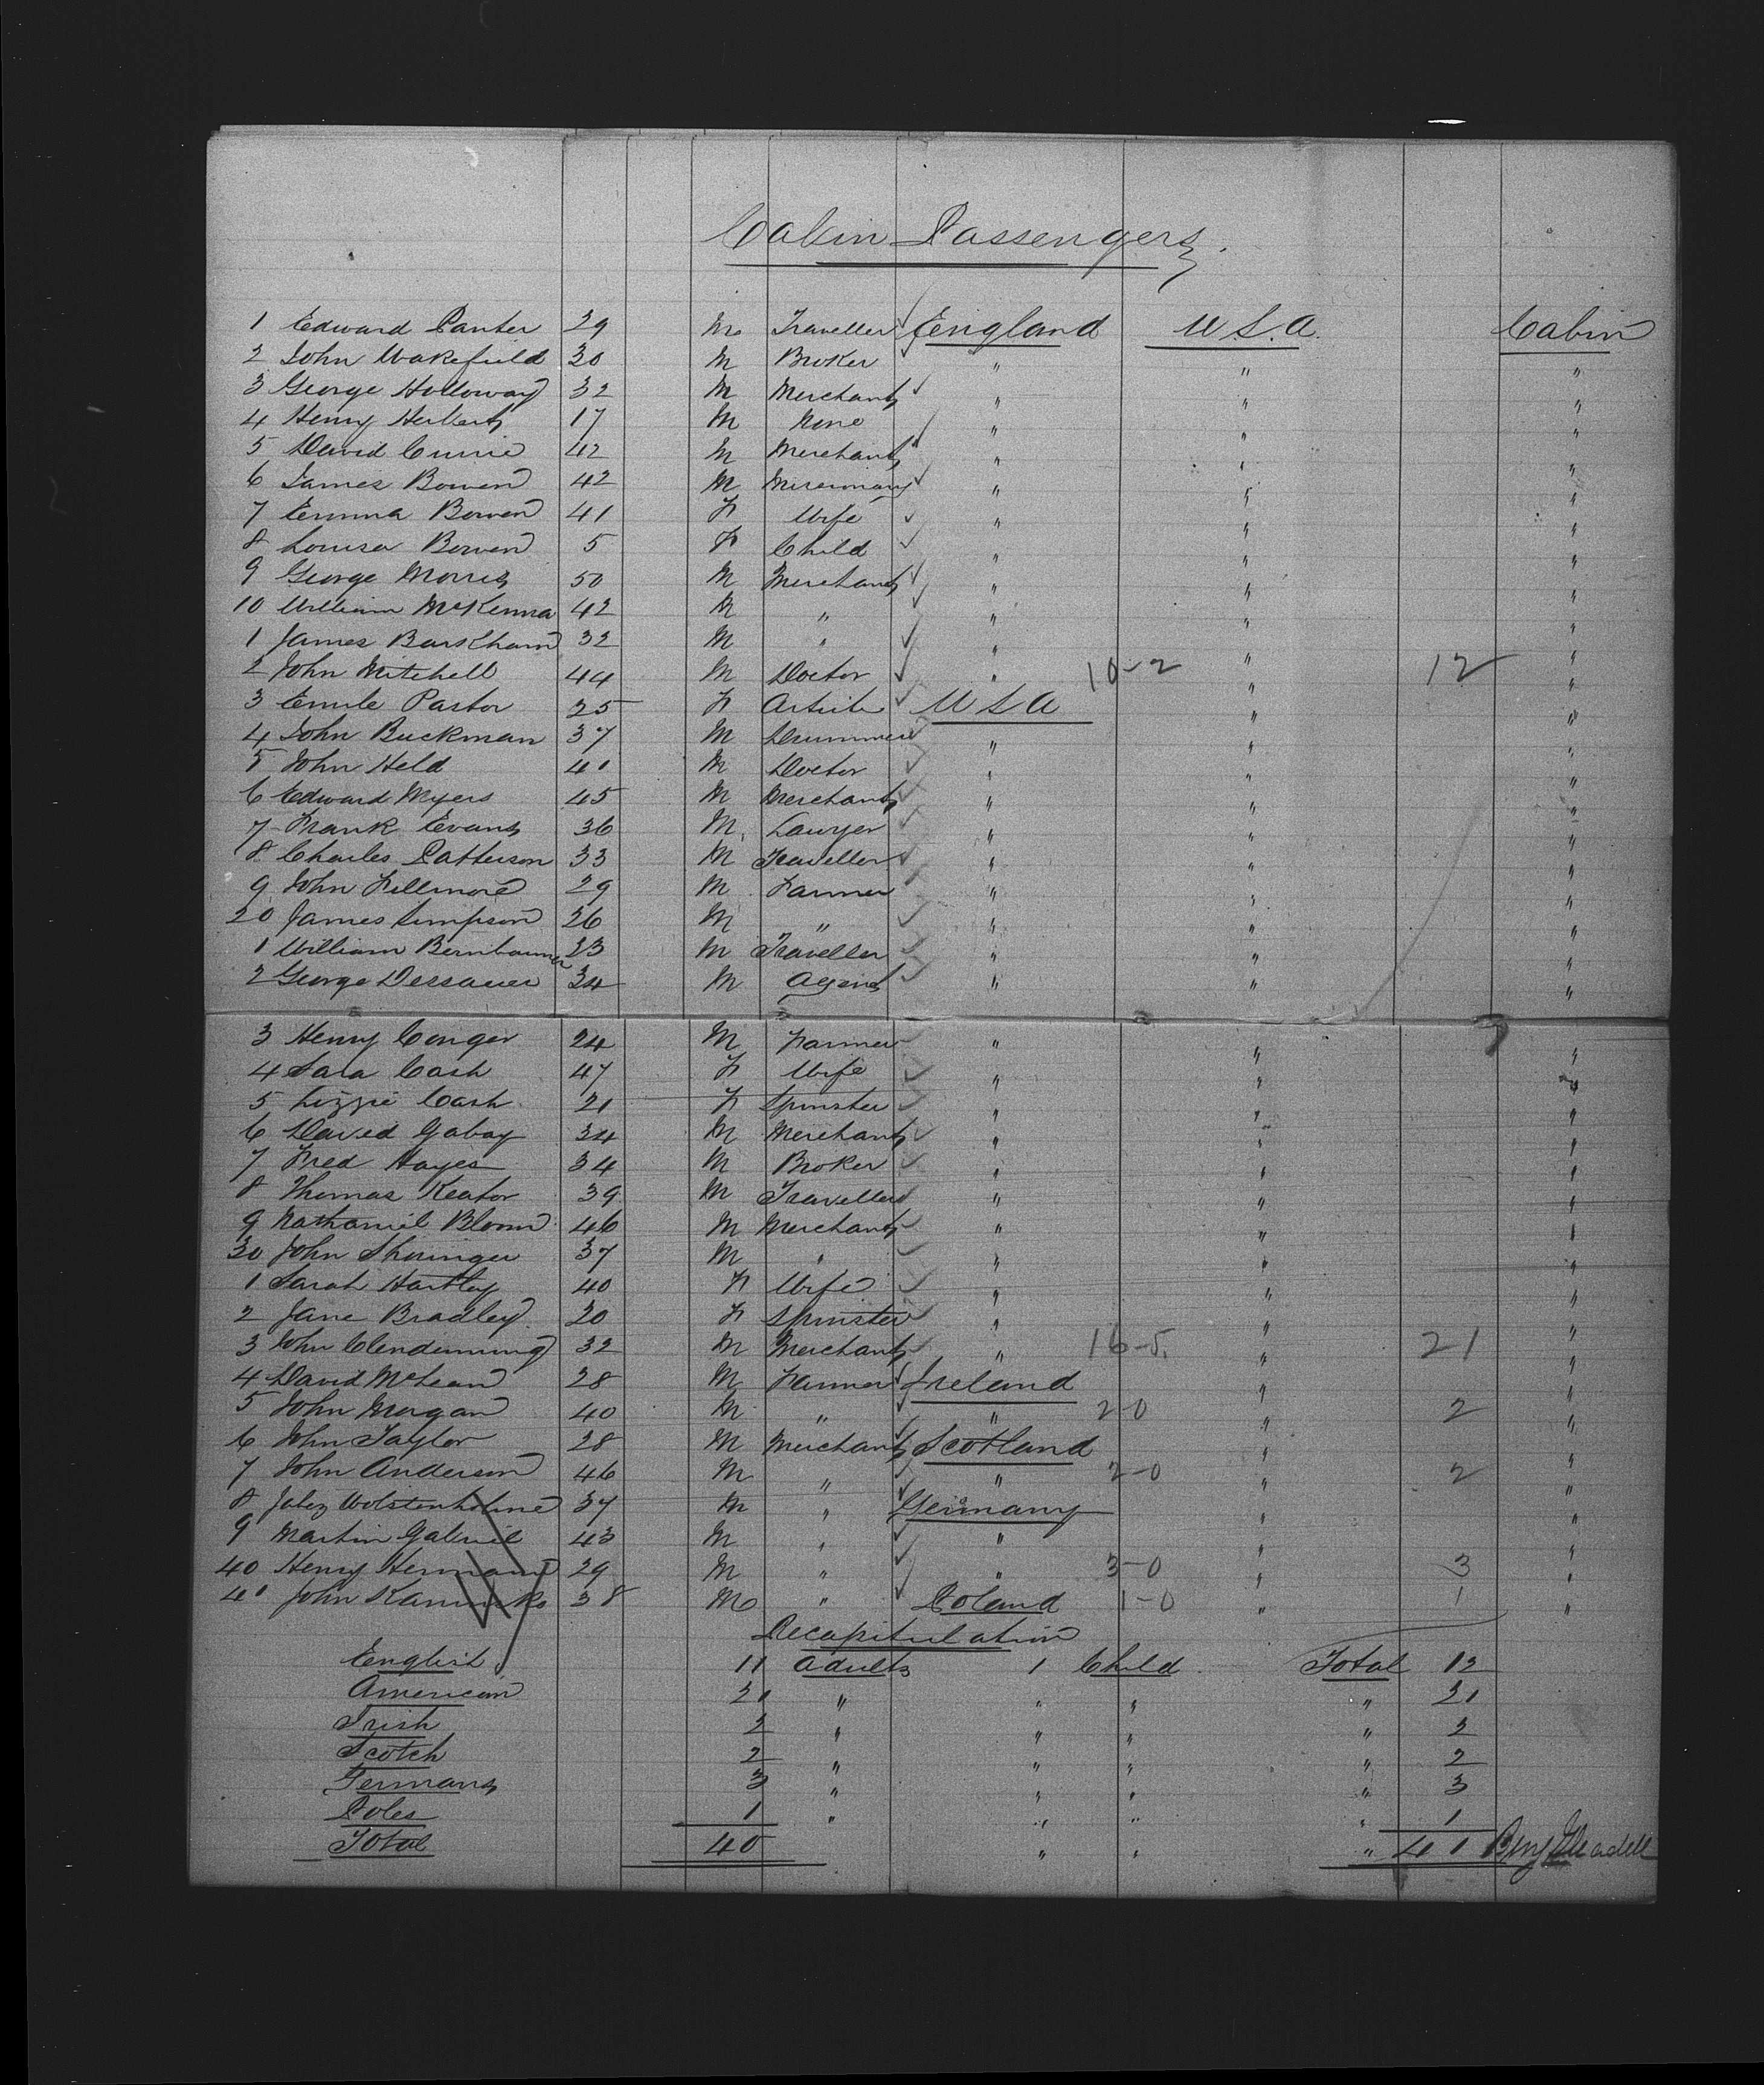 Cabin Passengers.
1 Edward Panter 29 M Traveller England U.S.A. Cabin
2 John Wakefield 30 M Broker " " "
3 George Holloway 32 M Merchant " " "
4 Henry Herbert 17 M None " " "
5 David Currie 42 M Merchant " " "
6 James Bowen 42 M Missionary " " "
7 Emma Bowen 41 F Wife " " "
8 Louisa Bowen 5 F Child " " "
9 George Morris 50 M Merchant " " "
10 William McKenna 42 M " " " "
1 James Barkham 32 M " " " "
2 John Mitchell 44 M Doctor " 10-2 " 12 "
3 Emile Pastor 25 F Artiste U S A " "
4 John Buckman 37 M Drummer " " "
5 John Held 40 M Doctor " " "
6 Edward Myers 45 M Merchant " " "
7 Frank Evans 36 M Lawyer " " "
8 Charles Patterson 33 M Traveller " " "
9 John Fillmore 29 M Farmer " " "
20 James Simpson 26 M " " " "
1 William Bernbaumer 23 M Traveller " " "
2 George Dessauer 34 M Agent " " "
3 Henry Conger 24 M Farmer " " "
4 Sara Cash 47 F Wife " " "
5 Lizzie Cash 21 F Spinster " " "
6 David Gabay 34 M Merchant " " "
7 Fred Hayes 34 M Broker " " "
8 Thomas Keator 39 M Traveller " " "
9 Nathaniel Bloom 46 M Merchant " " "
30 John 37 M " " " "
1 Sarah Hartley 40 F Wife " " "
2 Jane Bradley 20 F Spinster " " "
3 John Clendenning 32 M Merchant " 16-5 " 21 "
4 David McLean 28 M Farmer Ireland " "
5 John Morgan 40 M " " 2-0 " 2 "
6 John Taylor 28 M Merchant Scotland " "
7 John Anderson 46 M " " 2-0 " 2 "
8 Jabez Wolstenholme 37 M " Germany " "
9 Martin Gabriel 43 M " " " "
40 Henry Hermann 29 M " " 3-0 " 3 "
41 John 38 M " Poland 1-0 " 1 "
Recapitulation
English 11 Adults 1 Child. Total 12
American 21 " " " " 21
Irish 2 " " " " 2
Scotch 2 " " " " 2
Germans 3 " " " " 3
Poles 1 " " " " 1
Total 40 " " " 41 Benj Gleadell